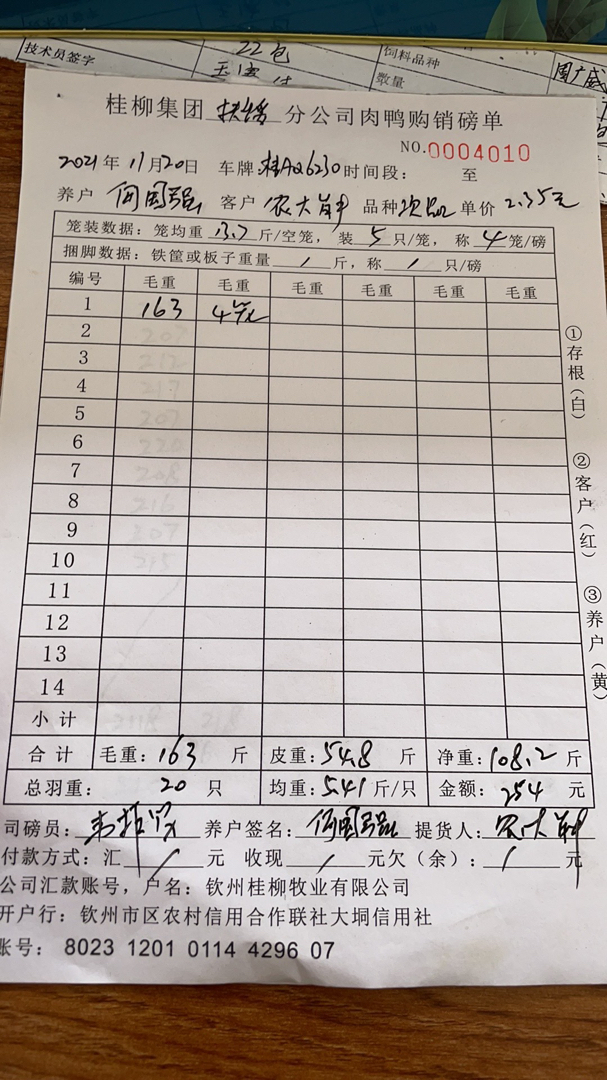 技术员签字 22包 饲料品种
数量
桂柳集团 分公司肉鸭购销磅单
NO.0004010
2021年11月20日 车牌:桂AQ6230 时间段: 至
养户 何国强 客户 农大 品种 次品 单价 2.35元
笼装数据:笼均重 13.7 斤/空笼,装 5 只/笼,称 4 笼/磅
捆脚数据:铁筐或板子重量 / 斤,称 / 只/磅
编号 毛重 毛重 毛重 毛重 毛重 毛重
1 163 4笼
2 207
3 212
4 217
5 207
6 220
7 208
8 216
9 207
10 215
11
12
13
14
小计 2118 218
合计 毛重:163 斤 皮重:54.8 斤 净重:108.2 斤
总羽重: 20 只 均重:5.41 斤/只 金额:254 元
司磅员: 养户签名:何国强 提货人:农大
付款方式:汇 / 元 收现 / 元欠(余): / 元
公司汇款账号,户名:钦州桂柳牧业有限公司
开户行:钦州市区农村信用合作联社大垌信用社
账号: 8023 1201 0114 4296 07
①存根(白)
②客户(红)
③养户(黄)